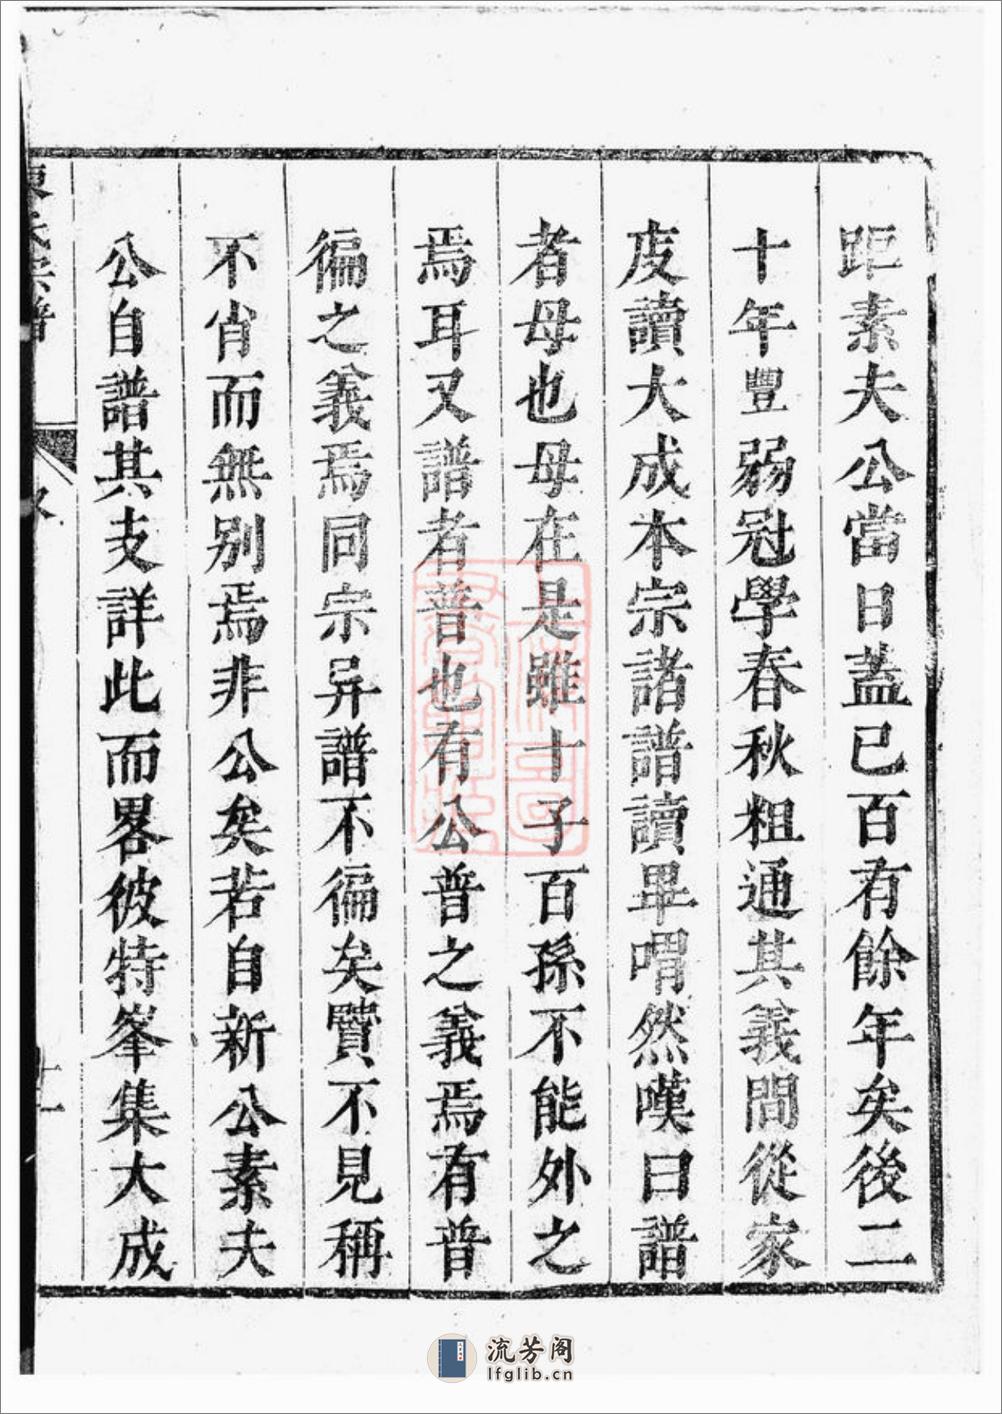 距素夫公當日蓋已百有餘年矣後二
十年豐弱冠學春秋粗通其義間從家
庋讀大成本宗諸譜讀畢喟然嘆曰譜
者母也母在是雖十子百孫不能外之
焉耳又譜者普也有公普之義焉有普
徧之義焉同宗异譜不徧矣贒不見稱
不肖而無別焉非公矣若自新公素夫
公自譜其支詳此而畧彼特峯集大成
氏宗譜
流芳阁
lfglib.cn